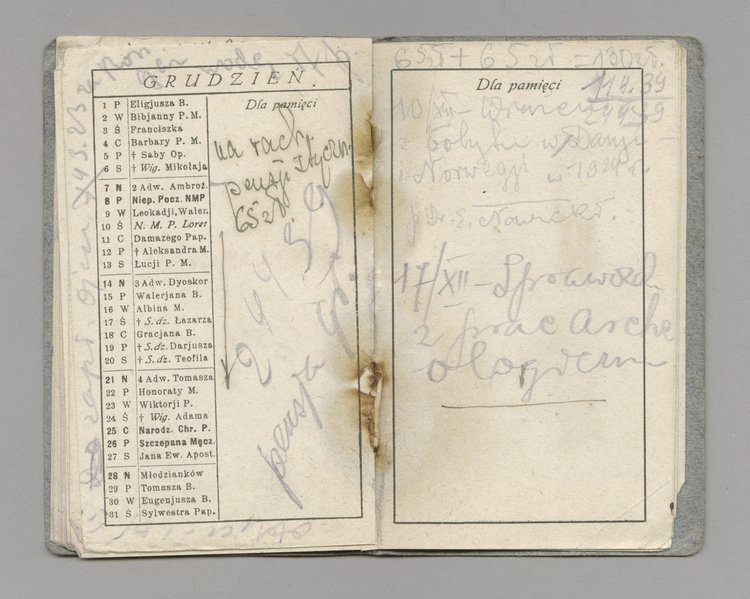 GRUDZIEŃ.
Dla pamięci
1 P Eligjusza B.
2 W Bibjanny P. M.
3 Ś Franciszka
4 C Barbary P. M.
5 P † Saby Op.
6 S † Wig. Mikołaja
7 N 2 Adw. Ambroż.
8 P Niep. Pocz. NMP
9 W Leokadji, Waler.
10 Ś N. M. P. Loret
11 C Damazego Pap.
12 P † Aleksandra M.
13 S Łucji P. M.
14 N 3 Adw. Dyoskor
15 P Walerjana B.
16 W Albina M.
17 Ś † S. dz. Łazarza
18 C Gracjana B.
19 P † S. dz. Darjusza
20 S † S. dz. Teofila
21 N 4 Adw. Tomasza
22 P Honoraty M.
23 W Wiktorji P.
24 Ś † Wig. Adama
25 C Narodz. Chr. P.
26 P Szczepana Męcz.
27 S Jana Ew. Apost.
28 N Młodzianków
29 P Tomasza B.
30 W Eugenjusza B.
31 Ś Sylwestra Pap.
na rach.
pensji Stycz.
65 zł.
244 59
pensja
65 zł + 65 zł = 130 zł.
Dla pamięci
114.39
244 59
10 XII
z Pobytu w Danji
i Norwegji w 1924 r.
p. Dr. E. Nowicki.
17/XII - Sprawozd.
z prac Arche
ologiczn